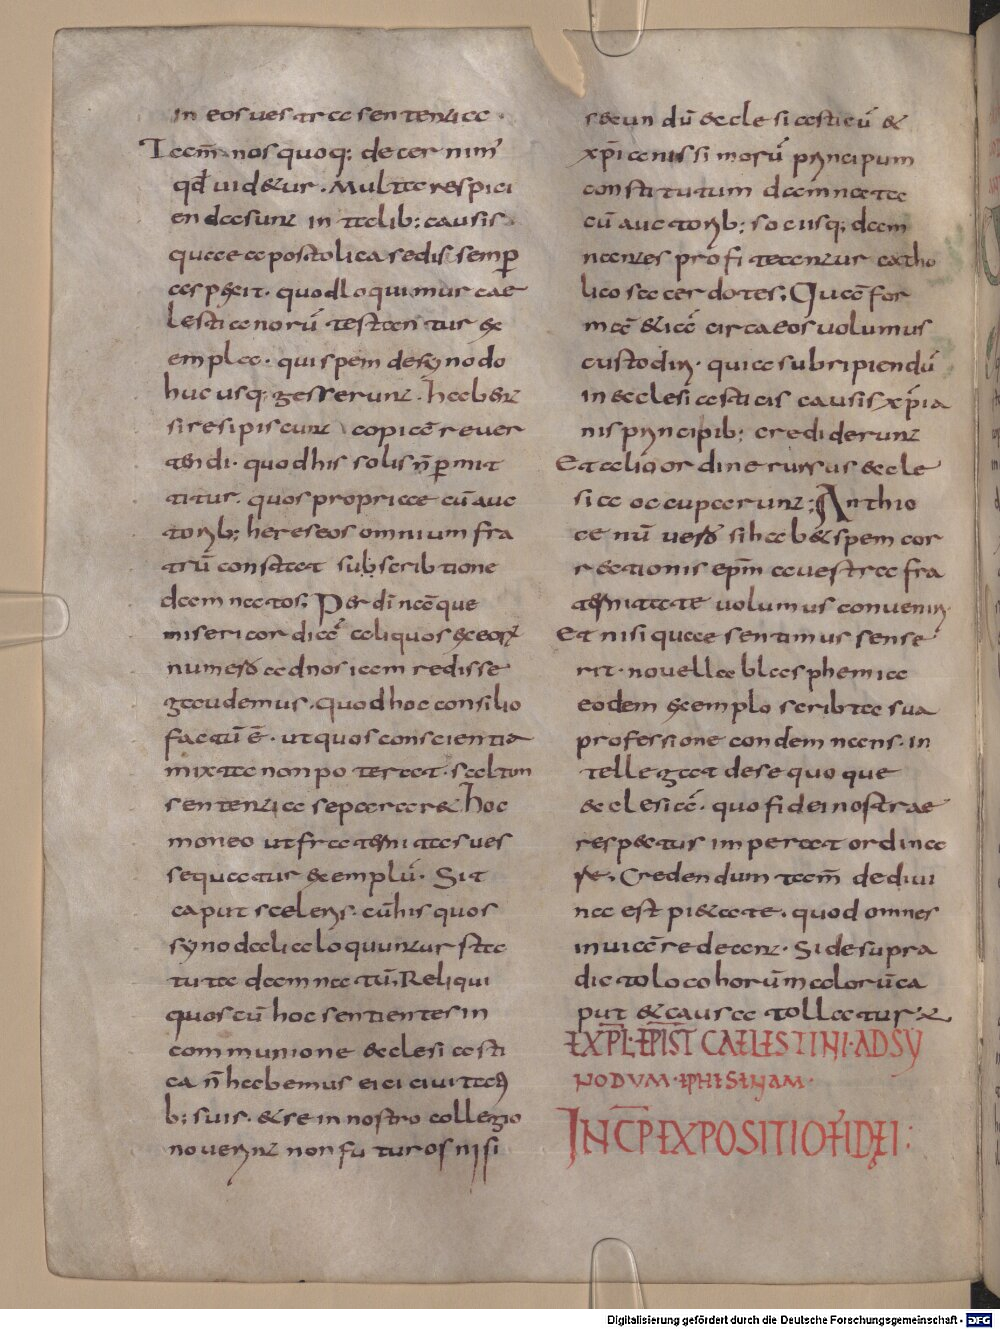 in eos uestra sententia.
Tam̅ nos quoq; decernim'
qd̅ uidetur. Multa respici
enda sunt in talib; causis
quae apostolica sedis semp̲
aspexit. quod loquimur cae
lestianorū testantur ex
empla. qui spem de synodo
huc usq; gesserunt. habent
si resipiscunt copiā reuer
tendi. quod his solis n̅ p̲mit
titur. quos propriae cū auc
torib; hereseos omnium fra
trū constat subscribtione
damnatos; Per diuinā que
misericordiā aliquos ex eorꝝ
numero ad nos iam redisse
gaudemus. quod hoc consilio
factū ē. ut quos conscientia
mixta non poterat. saltim
sententia separaret. hoc
moneo ut fraternitas ues
sequatur exemplū. Sit
caput sceleris. cū his quos
synodalia loquuntur sta
tuta damnatū; Reliqui
quos cū hoc sentientes in
communione ecclesiasti
ca n̅ habemus eici ciuitati
b; suis. et se in nostro collegio
nouerint non futuros nisi
secundū ecclesiasticū et
xp̅ianissimorū principum
constitutum damnata
cū auctorib; sociisq; dam
nantes profiteantur catho
lico sacerdotes; Quā for
mā etiā circa eos uolumus
custodiri. qui ea subripiendū
in ecclesiasticis causis xp̅ia
nis principib; crediderunt
Et alio ordine rursus eccle
sia occuparunt; Anthio
ce nū uero si habet spem cor
rectionis ep̅m a uestra fra
ternitate uolumus conuenire
Et nisi quae sentimus sense
rit. nouella blasphemia
eodem exemplo scribta sua
professione condemnans. in
tellegat de se quoque
ecclesiā. quo fidei nostrae
respectus imperat ordina
re; Credendum tam̅ de diui
na est pietate. quod omnes
in uicē redeant. Si de supra
dicto loco horū malorū ca
put et causa tollatur
EXPL̅. EP̅IST̅ CAELESTINI. AD SY
NODUM. EPHESINAM.
INC̅P EXPOSITIO FIDEI:
Digitalisierung gefördert durch die Deutsche Forschungsgemeinschaft - DFG